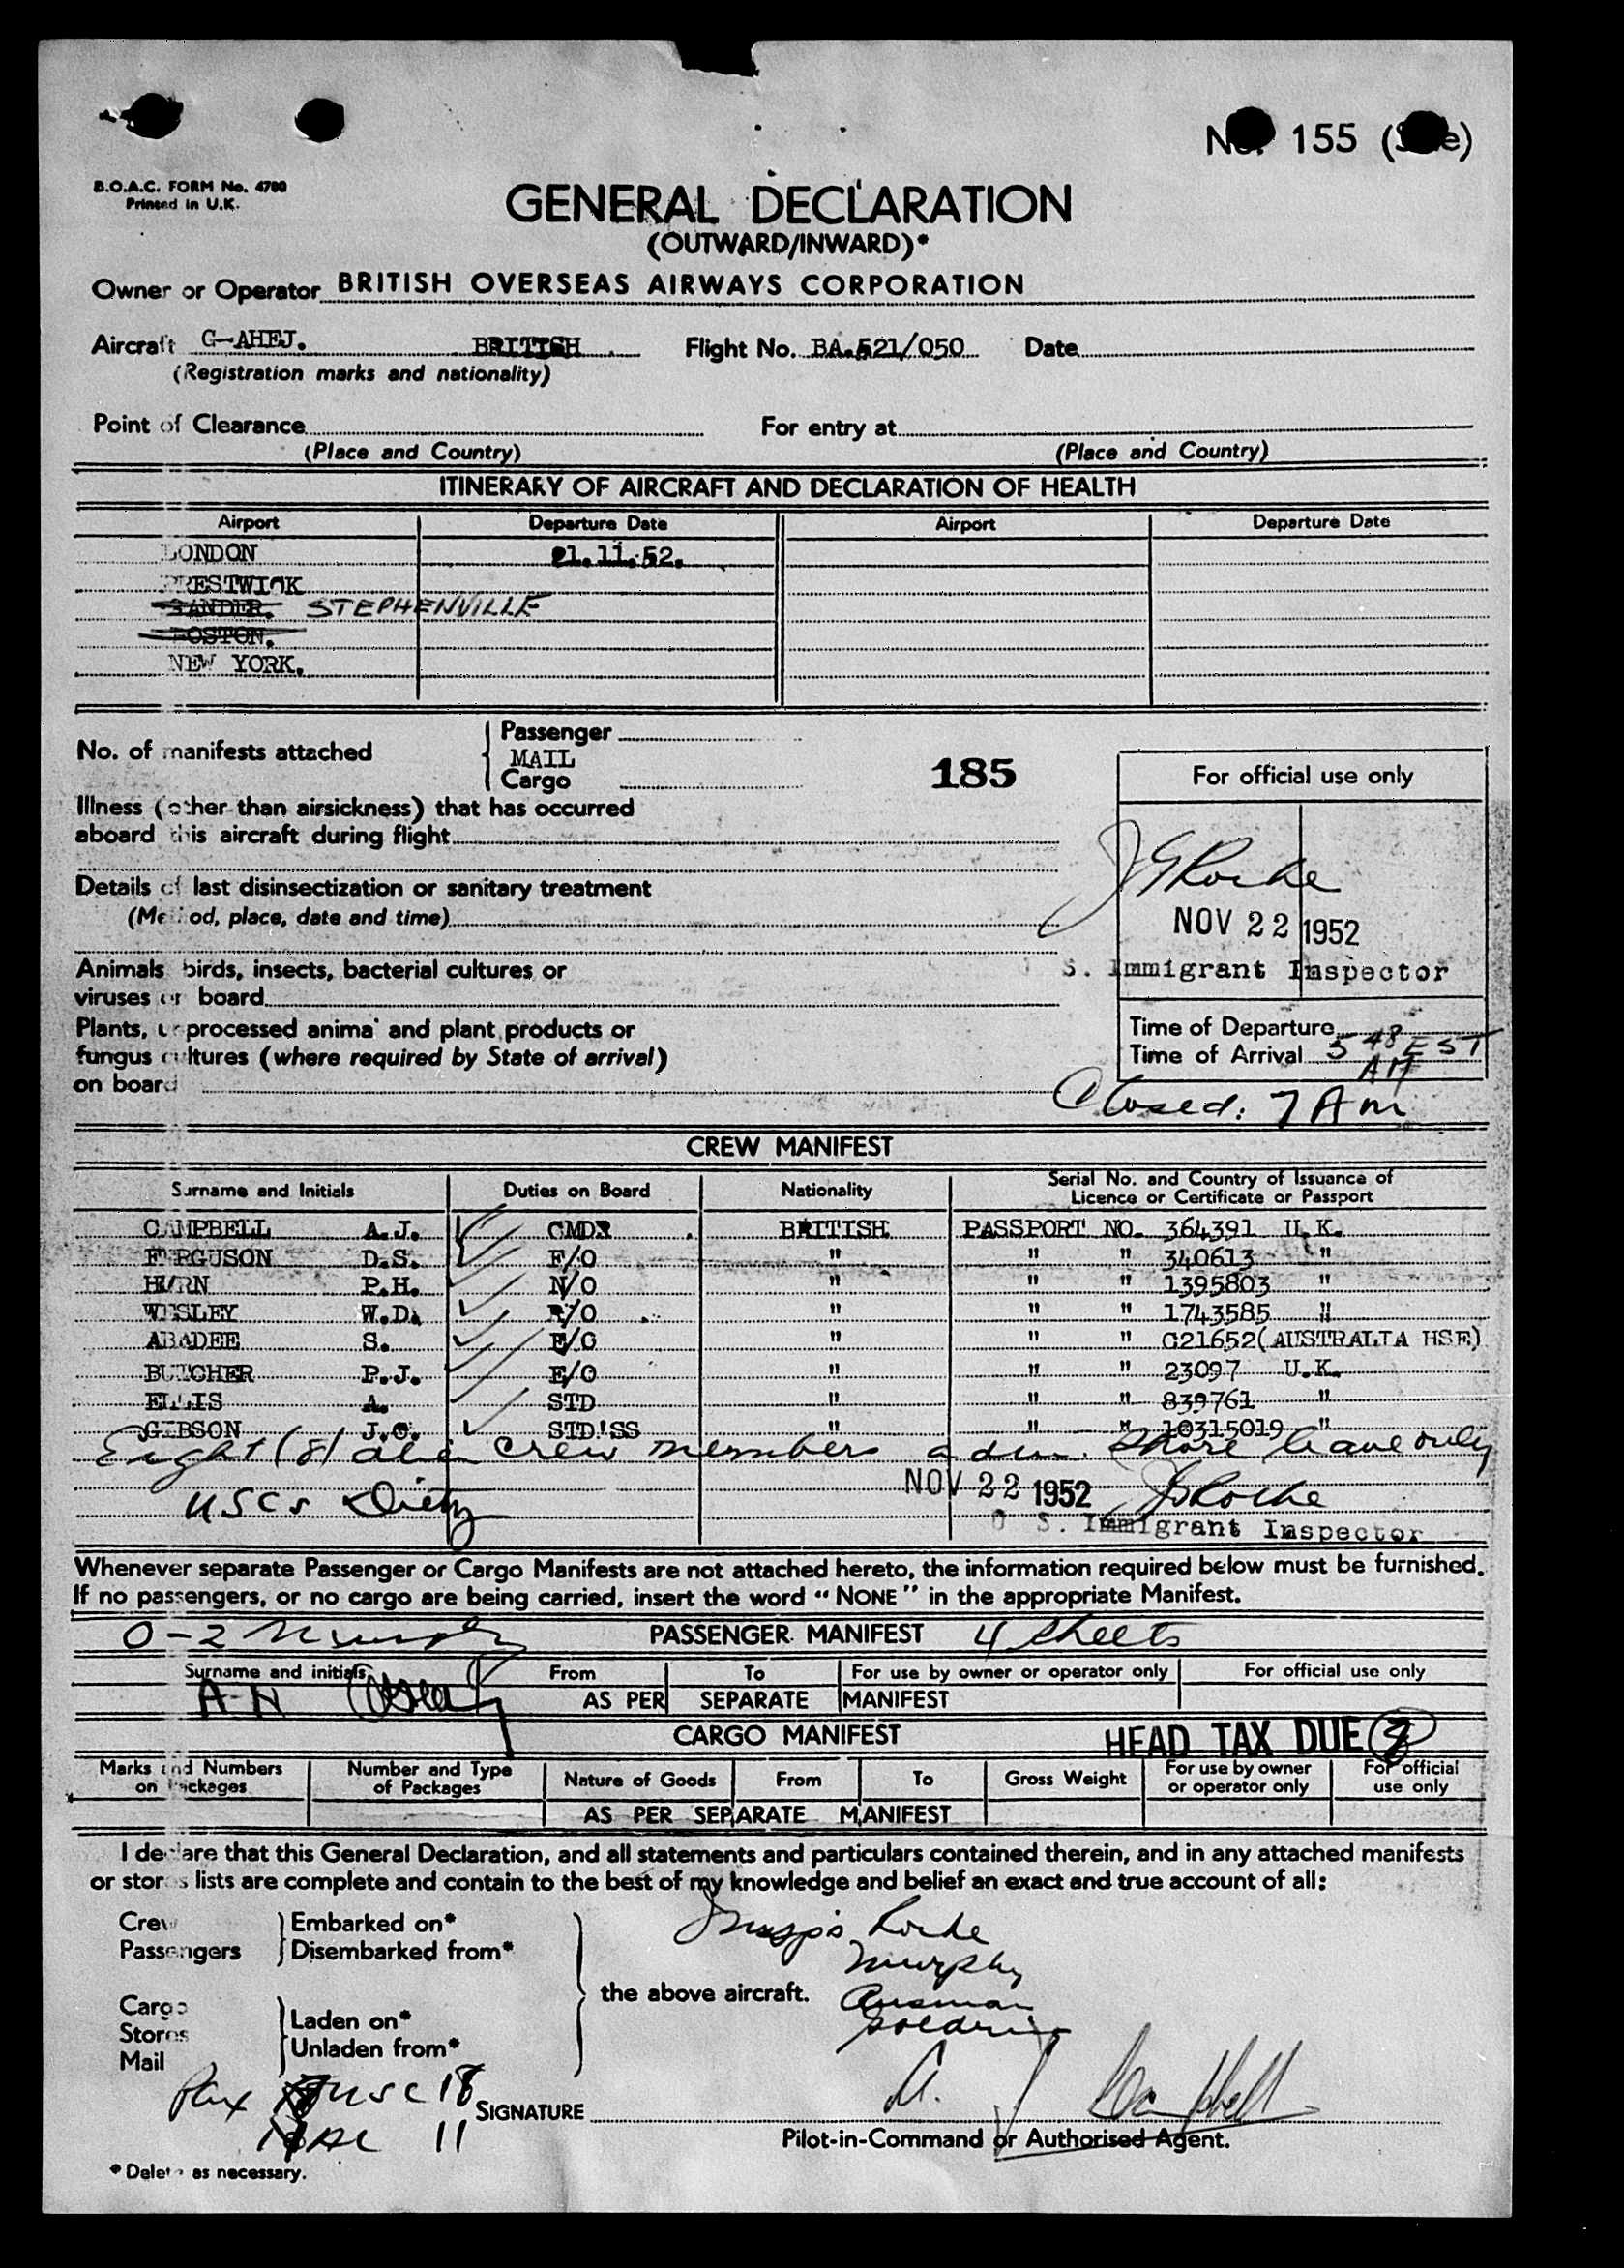 No. 155 (S e)
B.O.A.C. FORM No. 4700
Printed in U.K.
GENERAL DECLARATION
(OUTWARD/INWARD)*
Owner or Operator BRITISH OVERSEAS AIRWAYS CORPORATION
Aircraft G-AHEJ. BRITISH Flight No. BA.521/050 Date
(Registration marks and nationality)
Point of Clearance For entry at
(Place and Country) (Place and Country)
ITINERARY OF AIRCRAFT AND DECLARATION OF HEALTH
Airport Departure Date Airport Departure Date
LONDON 21.11.52.
PRESTWICK
GANDER. STEPHENVILLE
BOSTON.
NEW YORK.
No. of manifests attached
Passenger
MAIL
Cargo
185
For official use only
Illness (other than airsickness) that has occurred
aboard this aircraft during flight
Details of last disinsectization or sanitary treatment
(Method, place, date and time)
JG Roche
NOV 22 1952
S. Immigrant Inspector
Animals birds, insects, bacterial cultures or
viruses on board
Plants, unprocessed animal and plant products or
fungus cultures (where required by State of arrival)
on board
Time of Departure
Time of Arrival 5 48 EST
AM
Closed: 7 Am
CREW MANIFEST
Surname and Initials Duties on Board Nationality Serial No. and Country of Issuance of
Licence or Certificate or Passport
CAMPBELL A.J. CMDR. BRITISH PASSPORT NO. 364391 U.K.
FERGUSON D.S. F/O " " " 340613 "
HURN P.H. N/O " " " 1395803 "
WESLEY W.D. R/O " " " 1743585 "
ABADEE S. E/O " " " C21652(AUSTRALIA HSE)
BUTCHER P.J. E/O " " " 23097 U.K.
ELLIS A. STD " " " 839761 "
GIBSON J.C. STD'SS " " " 10315019 "
Eight (8) alien crew members adm. shore leave only
NOV 22 1952 JG Roche
USCs Dietz
S. Immigrant Inspector
Whenever separate Passenger or Cargo Manifests are not attached hereto, the information required below must be furnished.
If no passengers, or no cargo are being carried, insert the word "NONE" in the appropriate Manifest.
0-2 Murphy PASSENGER MANIFEST 4 sheets
Surname and initials From To For use by owner or operator only For official use only
AS PER SEPARATE MANIFEST
CARGO MANIFEST
HEAD TAX DUE
Marks and Numbers on Packages Number and Type of Packages Nature of Goods From To Gross Weight For use by owner or operator only For official use only
AS PER SEPARATE MANIFEST
I declare that this General Declaration, and all statements and particulars contained therein, and in any attached manifests
or stores lists are complete and contain to the best of my knowledge and belief an exact and true account of all:
Crew Embarked on*
Passengers Disembarked from*
Insp's Roche
Murphy
the above aircraft.
Ausman
Goldring
Cargo
Stores Laden on*
Mail Unladen from*
Pax USC 18
AL 11
SIGNATURE A. J Campbell
Pilot-in-Command or Authorised Agent.
* Delete as necessary.